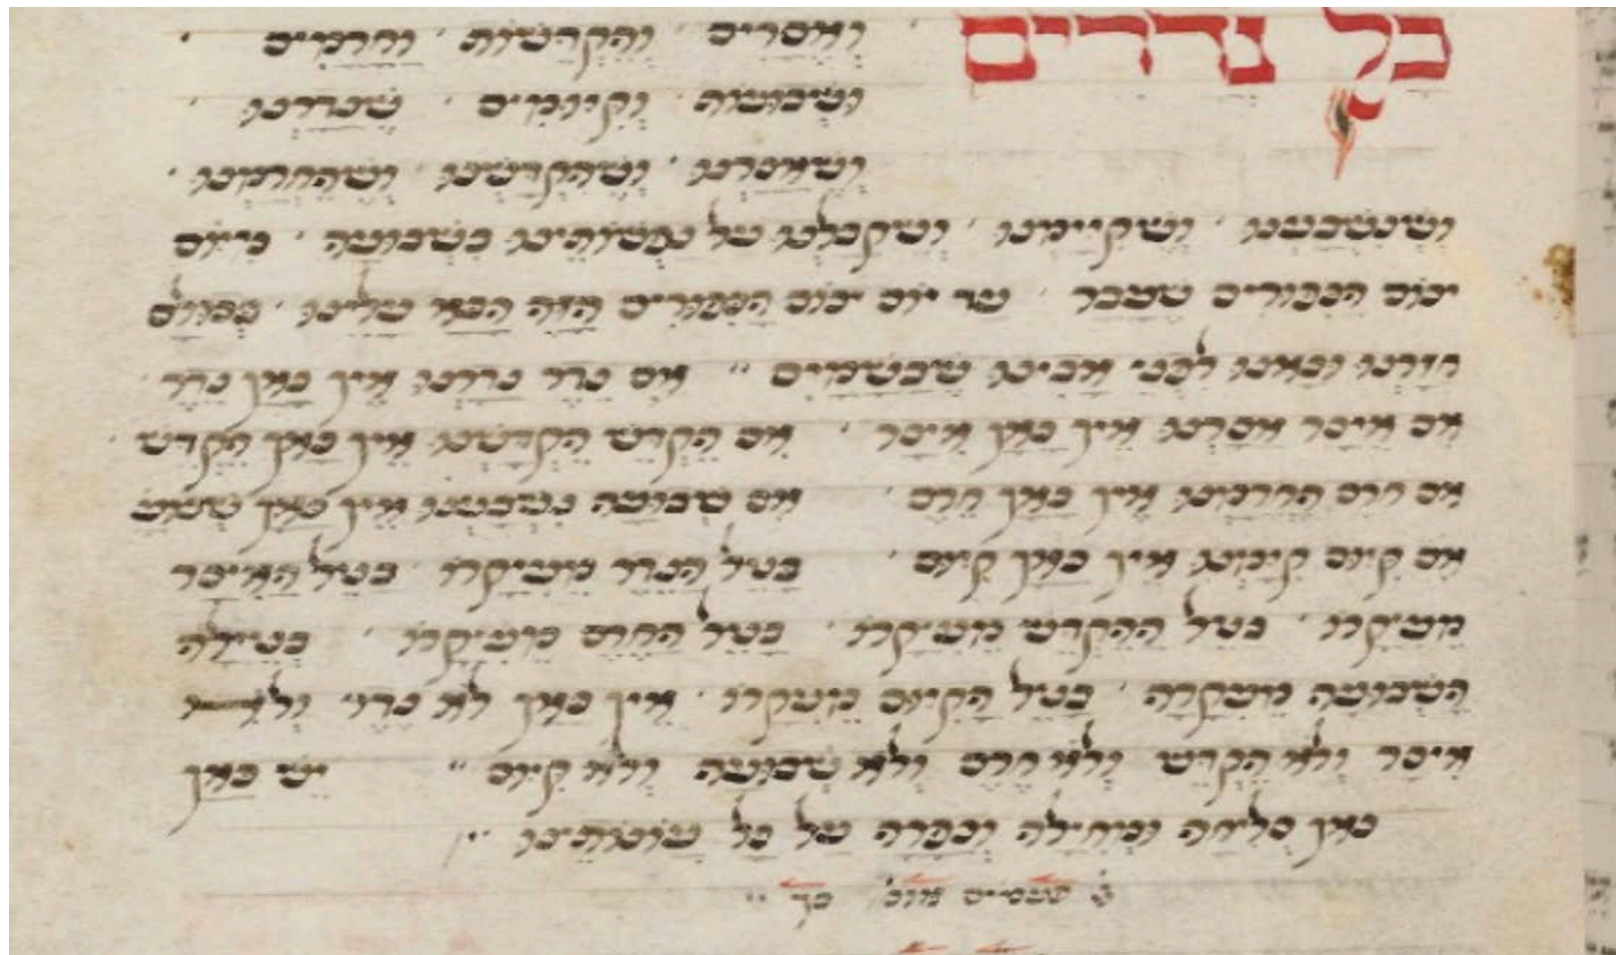 כל נדרים וְאֶסָרִים · וְהֶקְדֵשׁוֹת · וַחֲרָמִים ·
וּשְׁבוּעוֹת · וְקִיוּמִים · שֶׁנָדַרְנוּ ·
וְשֶׁאָסַרְנוּ · וְשֶׁהִקְדַשְׁנוּ · וְשֶׁהֶחְרַמְנוּ ·
וְשֶׁנִשְׁבַּעְנוּ · וְשֶׁקִיַימְנוּ · וְשֶׁקִבַּלְנוּ עַל נַפְשׁוֹתֵינוּ בִּשְׁבוּעָה · מִיוֹם
יוֹם הַכִּפּוּרִים שֶׁעָבַר · עַד יוֹם יוֹם הַכִּפּוּרִים הַזֶה הַבָּא עָלֵינוּ · בְּכוּלָם
חָזַרְנוּ וּבָאנוּ לִפְנֵי אָבִינוּ שֶׁבַּשָׁמַיִם ״ אִם נֶדֶר נָדַרְנוּ אֵין כָּאן נֶדֶר ·
אִם אִיסָר אָסַרְנוּ אֵין כָּאן אִיסָר · אִם הֶקְדֵשׁ הִקְדַשְׁנוּ אֵין כָּאן הֶקְדֵשׁ ·
אִם חֵרֶם הֶחֱרַמְנוּ אֵין כָּאן חֵרֶם · אִם שְׁבוּעָה נִשְׁבַּעְנוּ אֵין כָּאן
אִם קִיוּם קִיַמְנוּ אֵין כָּאן קִיוּם · בָּטֵל הַנֶדֶר מֵעִיקָרוֹ · בָּטֵל הָאִיסָר
מֵעִיקָרוֹ · בָּטֵל הַהֶקְדֵשׁ מֵעִיקָרוֹ · בָּטֵל הַחֵרֶם מֵעִיקָרוֹ · בְּטֵילָה
הַשְׁבוּעָה מֵעִקָרָה · בָּטֵל הַקִיוּם מֵעִקָרוֹ · אֵין כָּאן לֹא נֶדֶר · וְלֹא
אִיסָר וְלֹא הֶקְדֵשׁ וְלֹא חֵרֶם וְלֹא שְׁבוּעָה וְלֹא קִיוּם ״ יֵשׁ כָּאן
כָּאן סְלִיחָה וּמְחִילָה וְכַפָּרָה עַל כָּל עֲוֹנוֹתֵינוּ
ג׳ פעמים אומ׳ כך